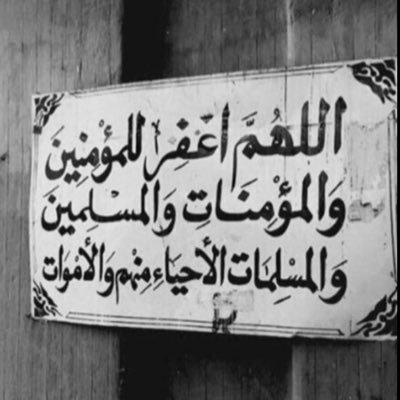 اللهُمَّ اغْفِرْ للمؤْمِنِينَ
وَالمؤْمِنَاتِ وَالمسْلِمينَ
وَالمسْلِمَات الأحيَاءِ مِنهم وَالأمْوَات